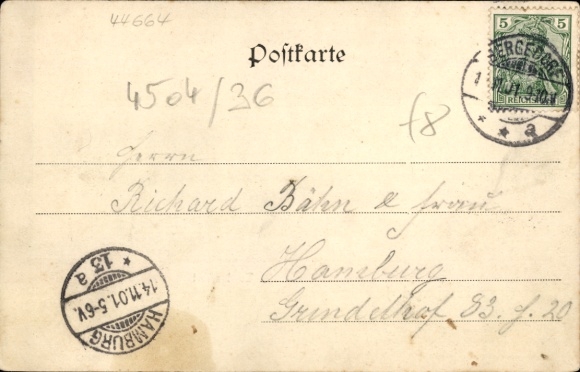 44664
Postkarte
5
BERGEDORF
REICHSPOST
* * a
4504/36
f8
Herrn
Richard Bähn & Frau
Hamburg
Grindelhof 83. f. 20
HAMBURG
14.11.01.5-6V.
* 13a